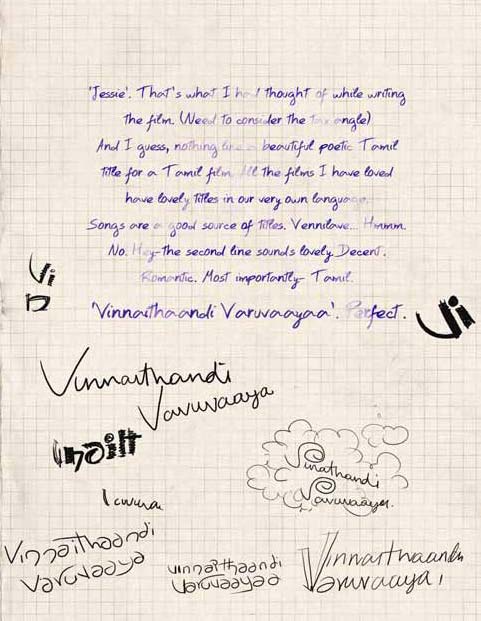 'Jessie'. That's what I had thought of while writing
the film. (Need to consider the tax angle)
And I guess, nothing like a beautiful poetic Tamil
title for a Tamil film. All the films I have loved
have lovely titles in our very own language.
Songs are a good source of titles. Vennilave... Hmmm.
No. Hey-the second line sounds lovely. Decent.
Romantic. Most importantly- Tamil.
'Vinnaithaandi Varuvaayaa'. Perfect.
Vi
Vi
Vinnaithandi
Varuvaaya
Vinathandi
Varuvaaya.
Vinnaithaandi
Varuvaaya
vinnaitthaandi
varuvaayaa
Vinnaithaandi
Varuvaaya,